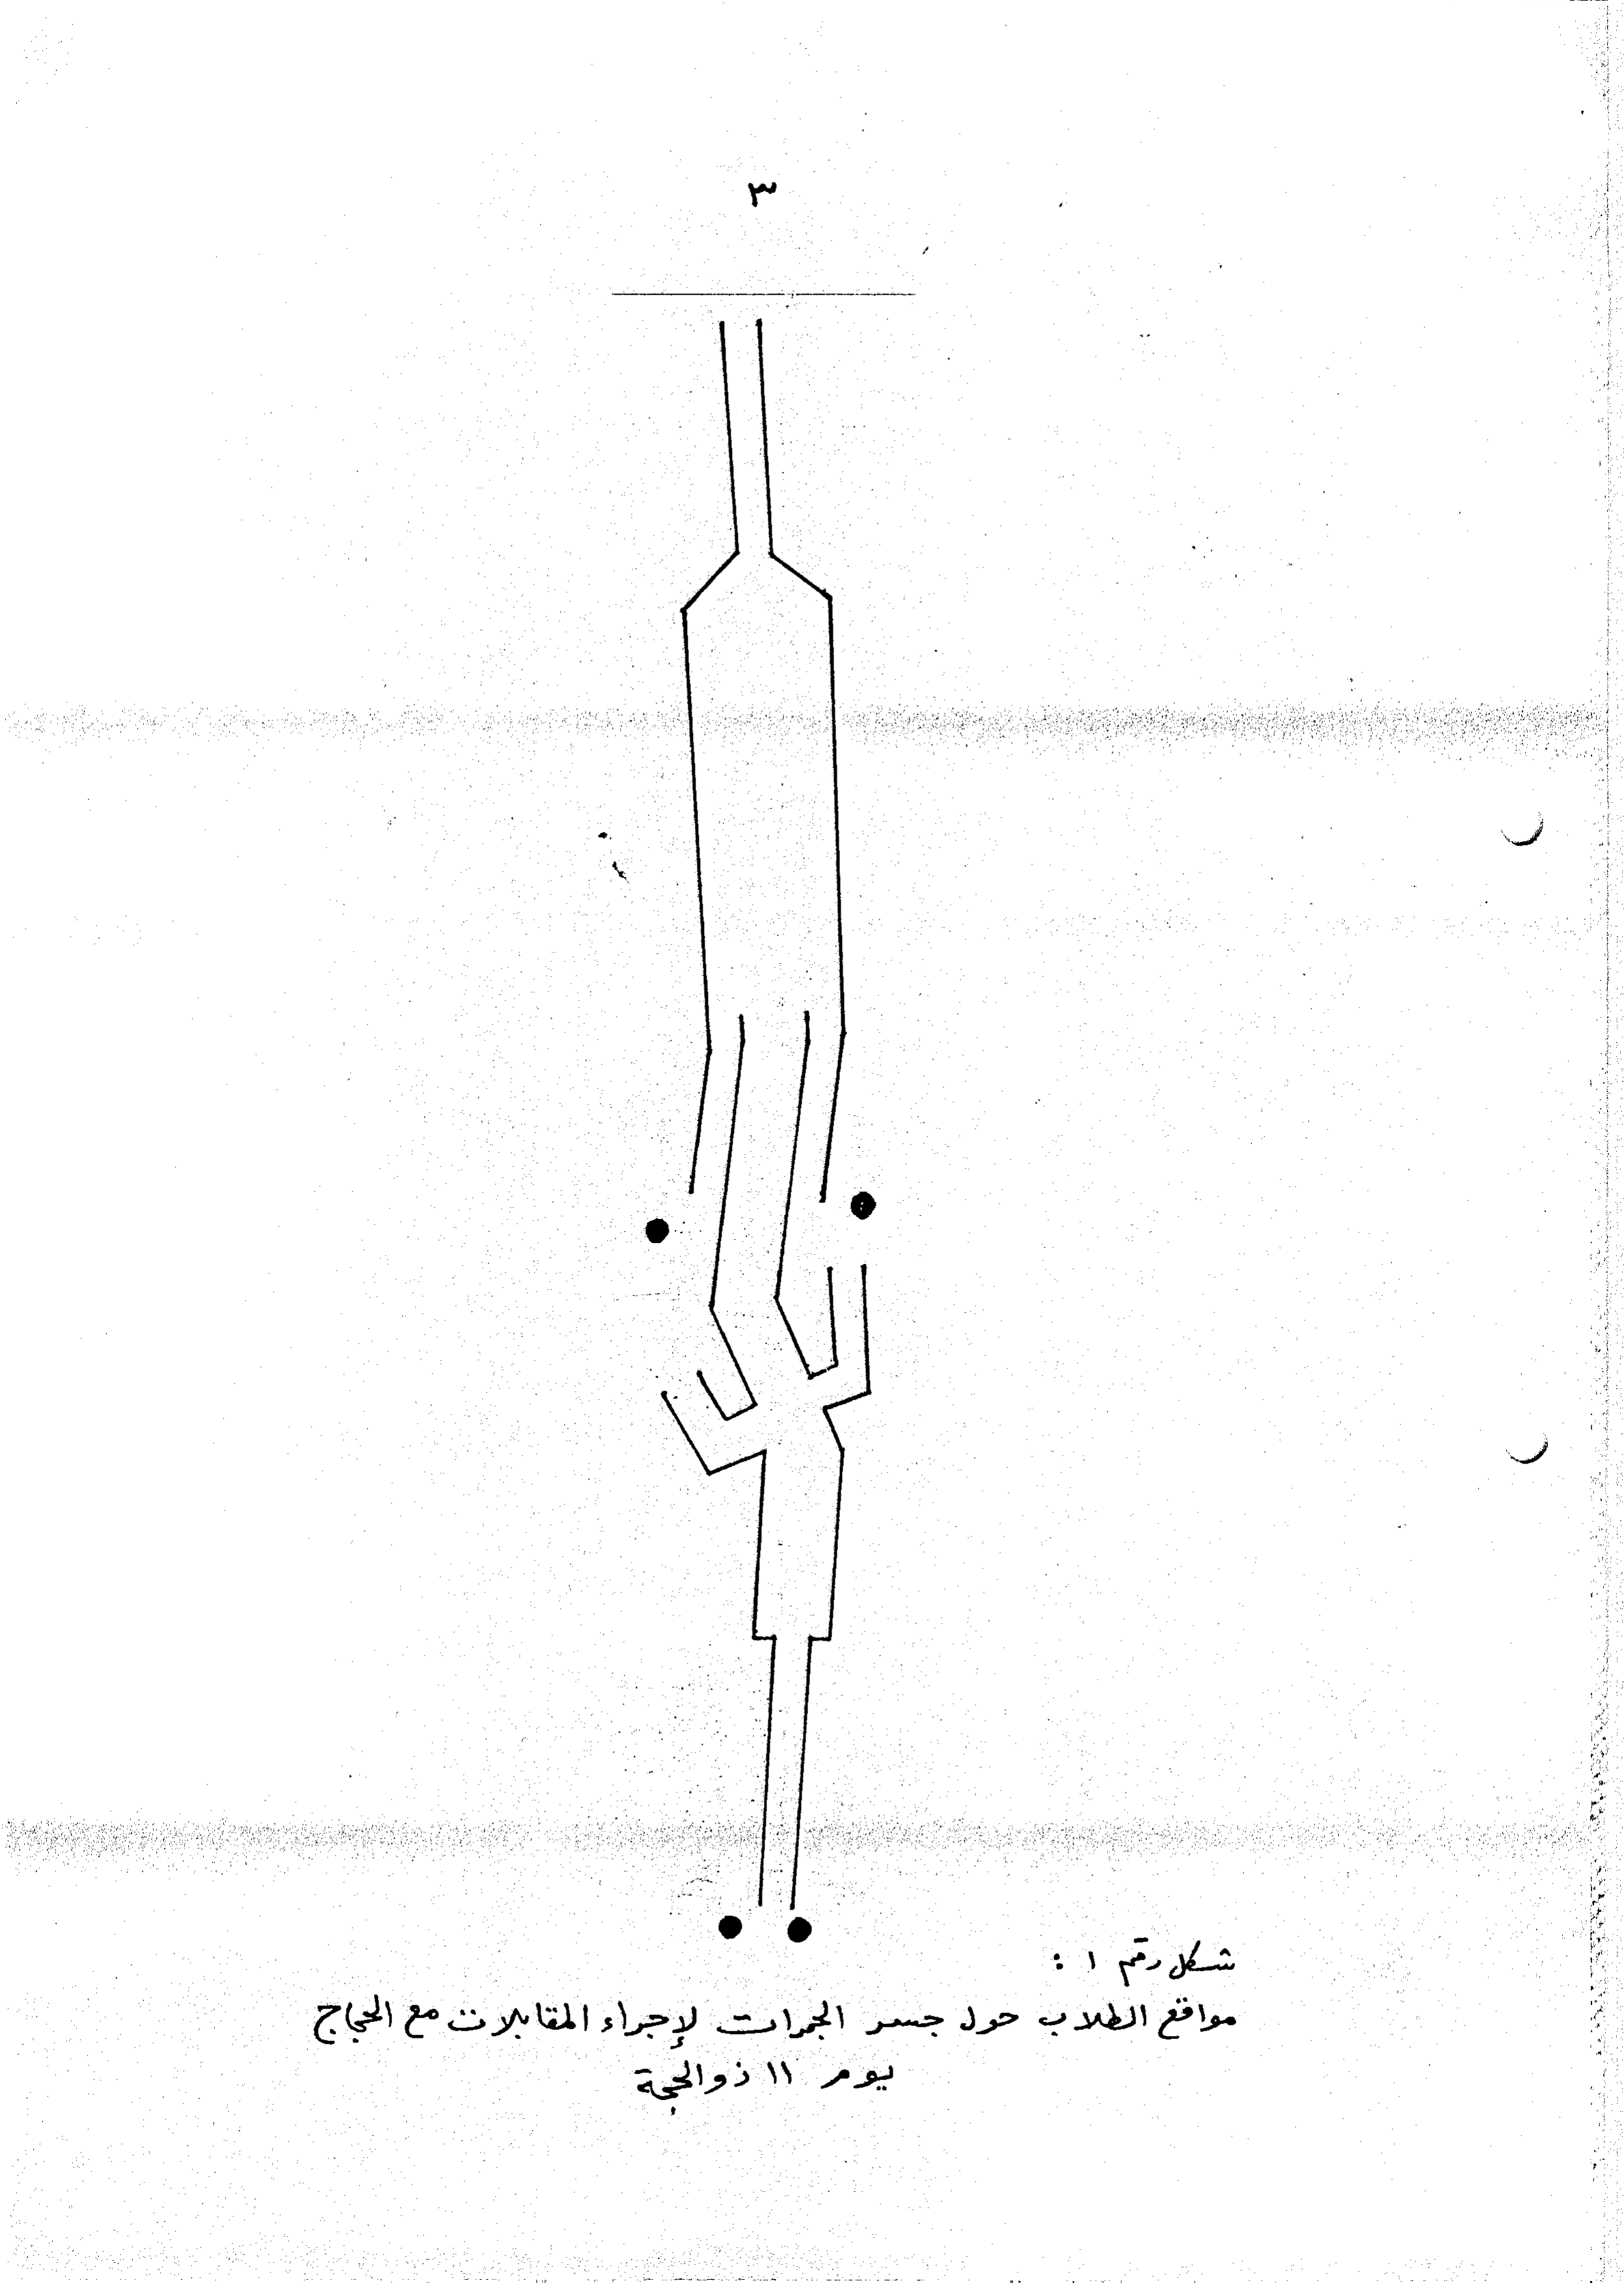 ٣
شكل رقم ١ :
مواقع الطلاب حول جسر الجمرات لإجراء المقابلات مع الحجاج
يوم ١١ ذو الحجة